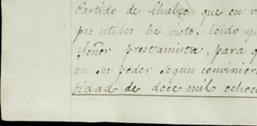 Partido de Chalco que en v
pas utiles he visto, leido y
Señor prestamista, para q
en su poder segun conviniere
tidad de doce mil ochoc